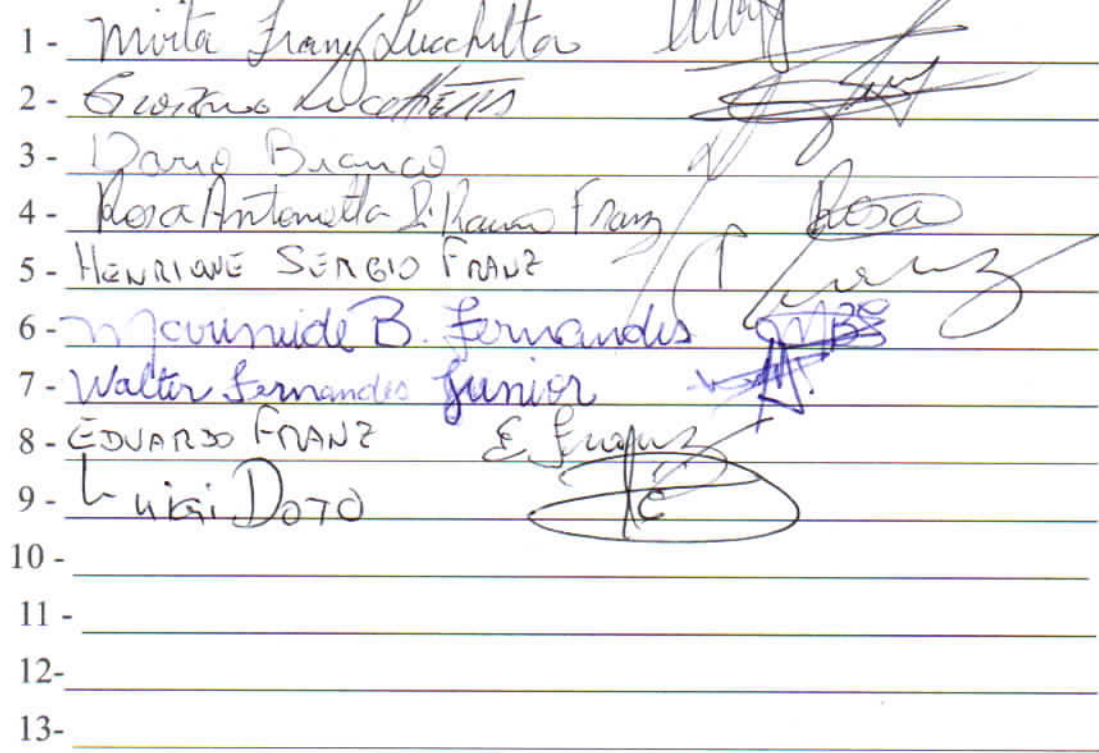 1 - Mirta Franz Lucchetta
2 - Lucchetta
3 - Dario Bianco
4 - Rosa Antonietta Di Franz Rosa
5 - HENRIQUE SERGIO FRANZ
6 - Marineide B. Fernandes MBF
7 - Walter Fernandes Junior
8 - EDUARDO FRANZ E. Franz
9 - Luigi DOTO
10 -
11 -
12-
13-